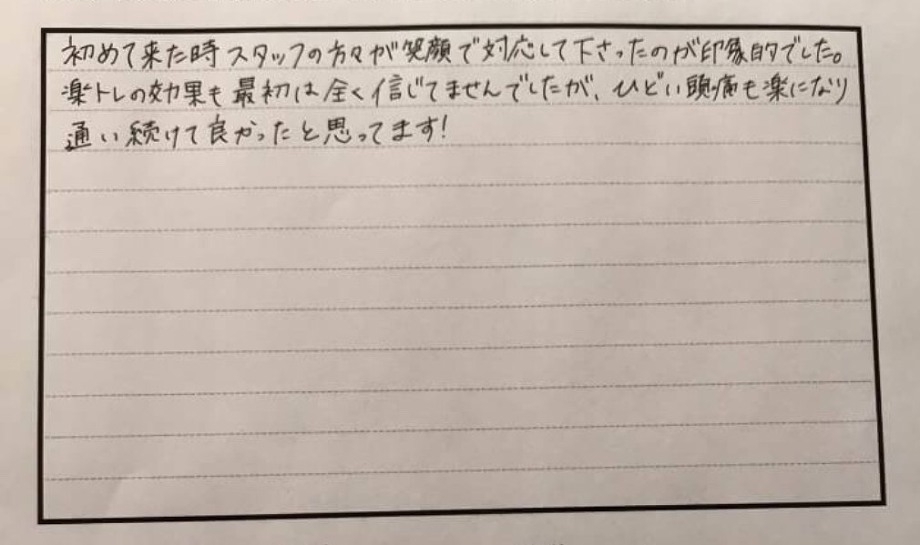 初めて来た時スタッフの方々が笑顔で対応して下さったのが印象的でした。
楽トレの効果も最初は全く信じてませんでしたが、ひどい頭痛も楽になり
通い続けて良かったと思ってます!